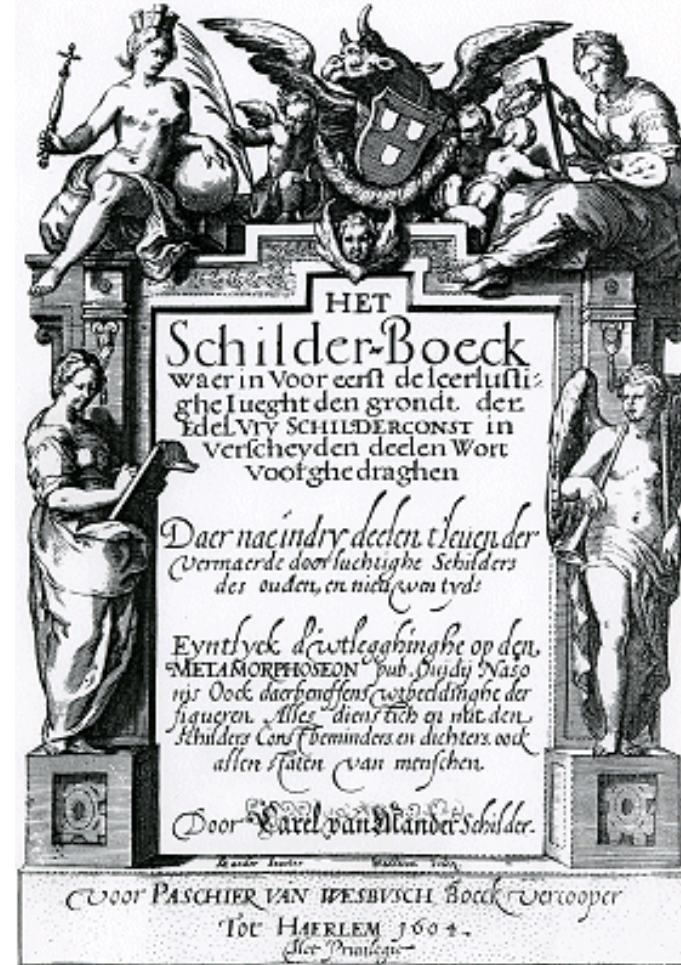 HET
Schilder-Boeck
waer in Voor eerst de leerlusti=
ghe Iueght den grondt der
Edel Vry SCHILDERCONST in
Verscheyden deelen Wort
Voorghedraghen
Daer nae in dry deelen t'leuen der
vermaerde doorluchtighe Schilders
des ouden, en nieuwen tyds
Eyntlyck d'wtlegghinghe op den
METAMORPHOSEON pub. Ouidij Naso
nis Oock daerbeneffens wtbeeldinghe der
figueren Alles dienstich en nut den
schilders Constbeminders en dichters. oock
allen staten van menschen
Door Carel van Mander Schilder.
voor PASCHIER VAN WESBVSCH Boeck vercooper
Tot HAERLEM 1604.
Met Privilegie